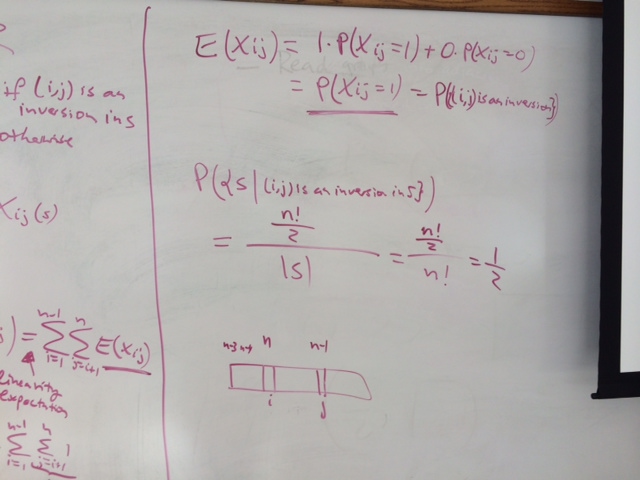 if (i,j) is an
inversion in s
otherwise
Xij(s)
) = \sum_{i=1}^{n-1} \sum_{j=i+1}^{n} E(Xij)
linearity
expectation
\sum_{i=1}^{n-1} \sum_{j=i+1}^{n} 1
E(Xij) = 1·P(Xij=1) + 0·P(Xij=0)
= P(Xij=1) = P({(i,j) is an inversion})
P({s | (i,j) is an inversion in s})
= \frac{\frac{n!}{2}}{|S|} = \frac{\frac{n!}{2}}{n!} = \frac{1}{2}
n n-1
i j